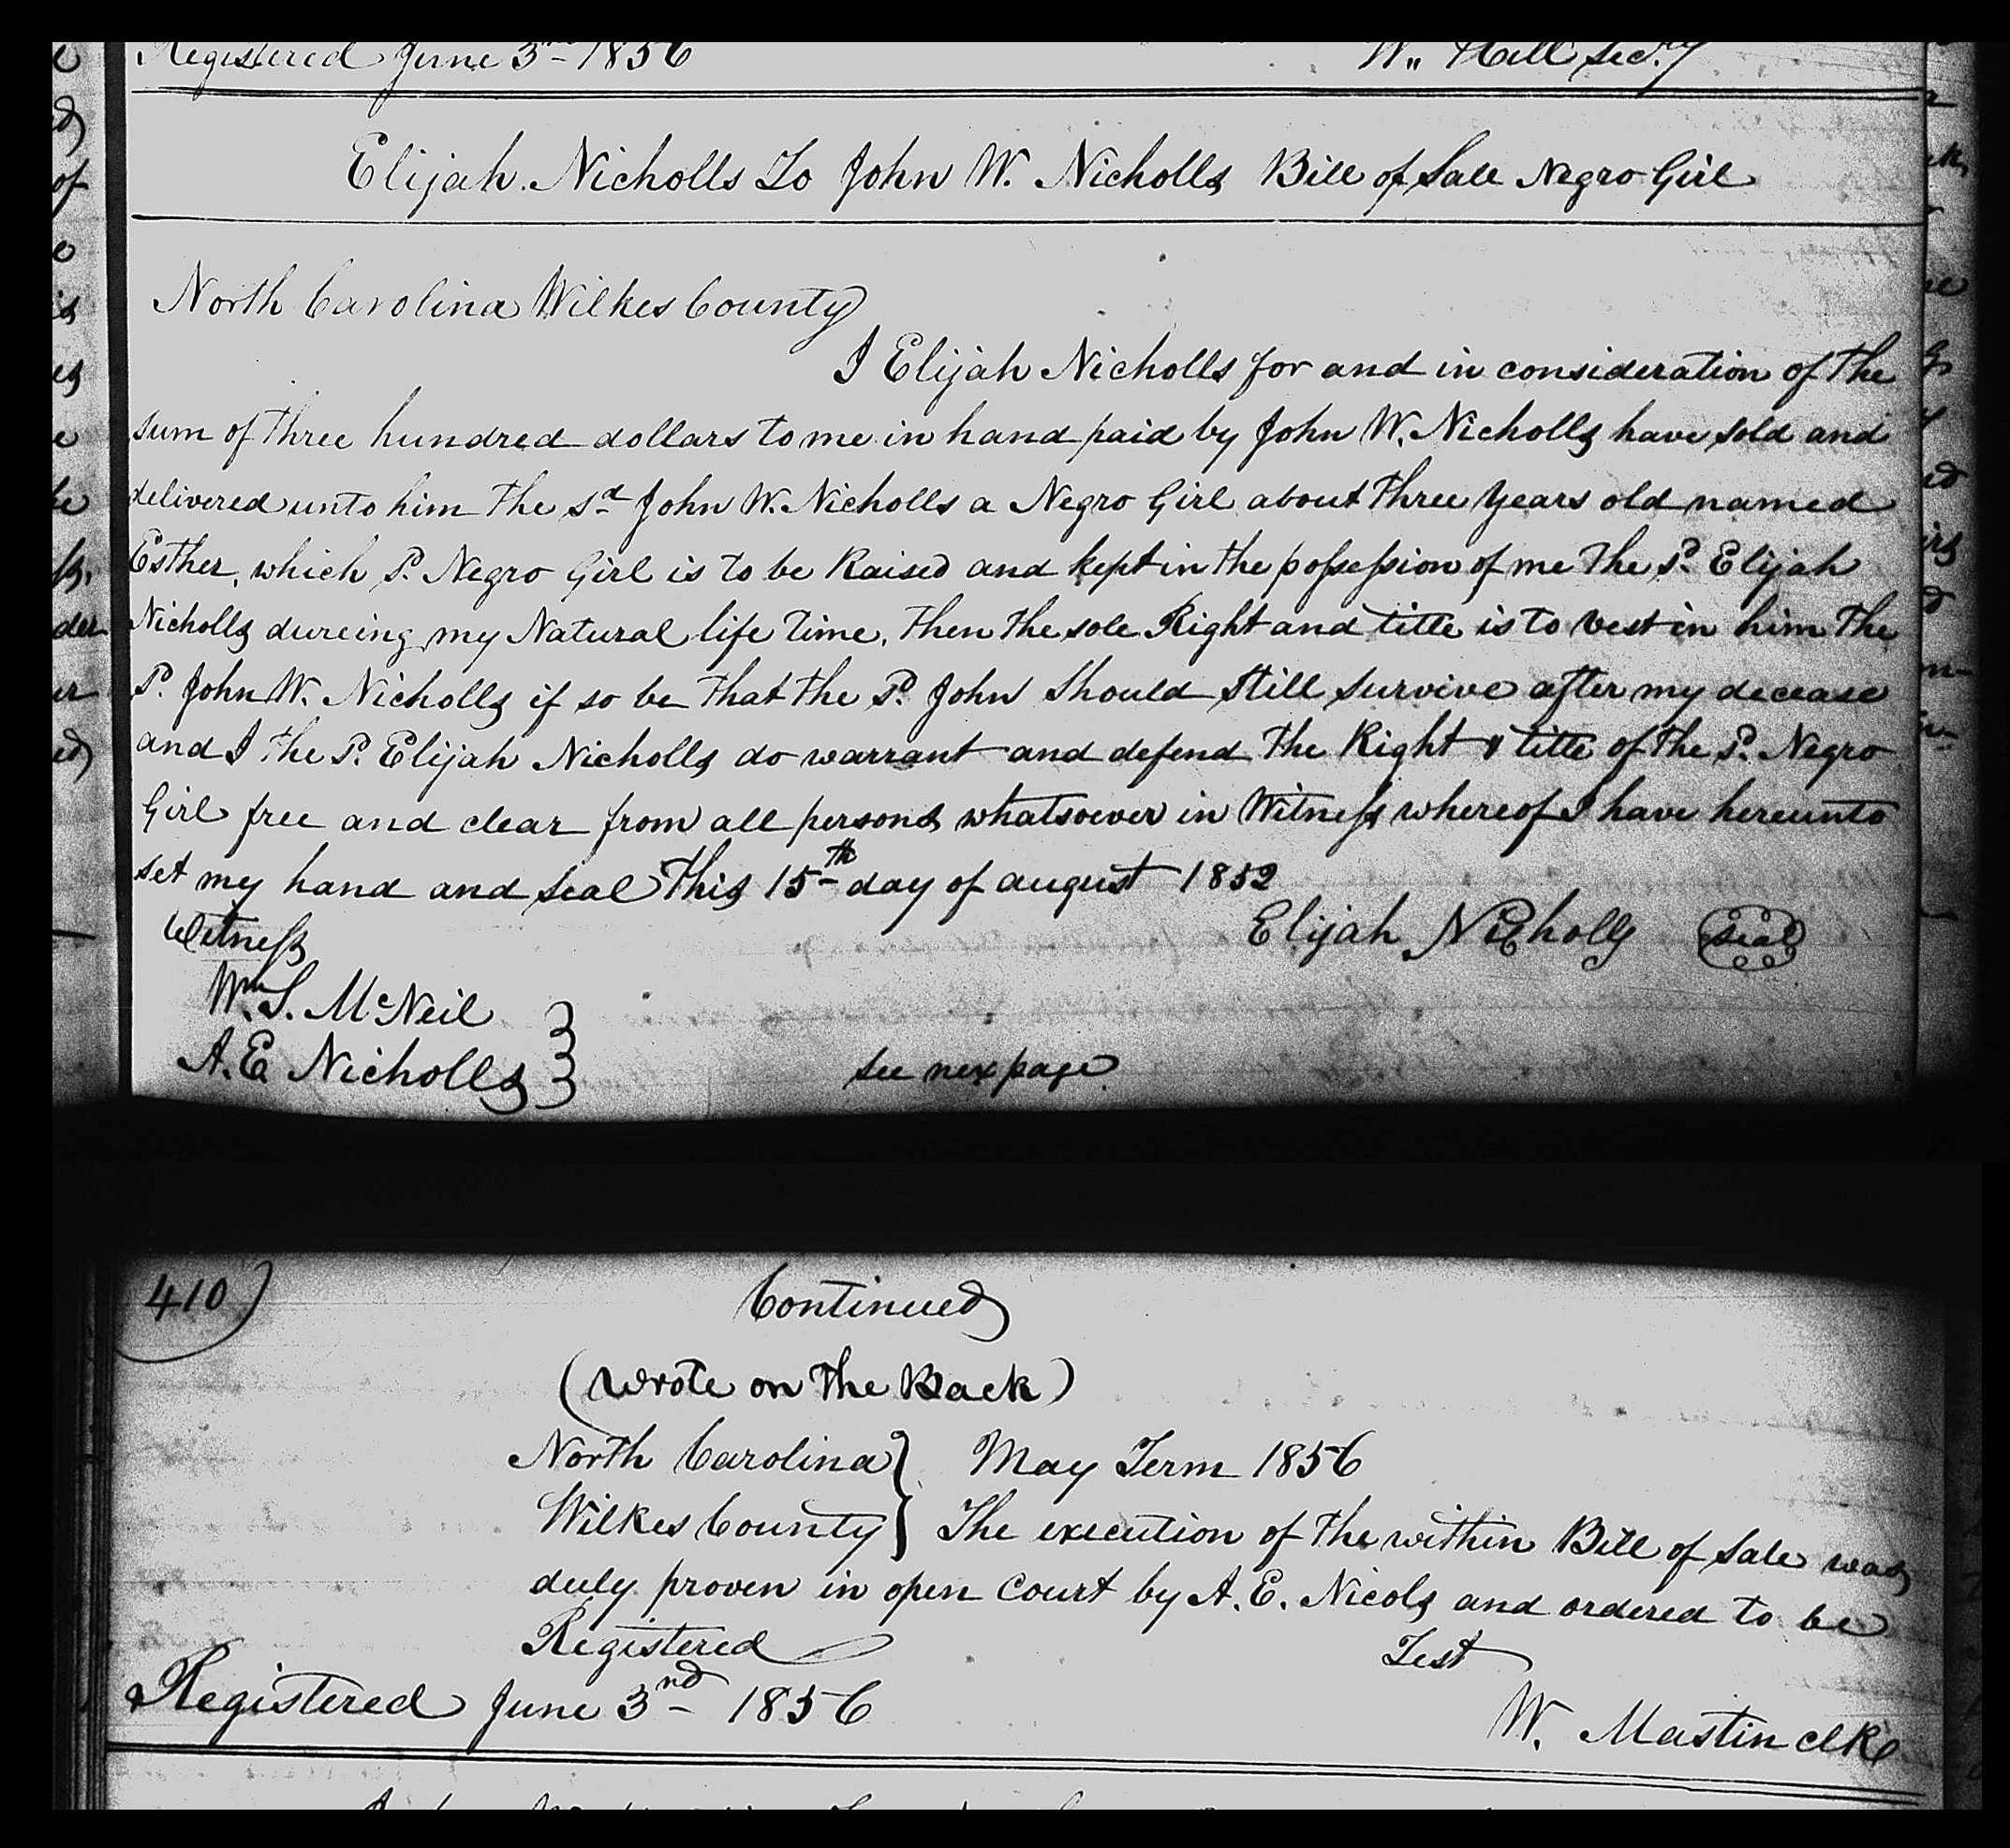 Registered June 3nd 1856 Wm Hill Secry
Elijah Nicholls To John W. Nicholls Bill of Sale Negro Girl
North Carolina Wilkes County
I Elijah Nicholls for and in consideration of the
sum of three hundred dollars to me in hand paid by John W. Nicholls have sold and
delivered unto him the sd John W. Nicholls a Negro Girl about three years old named
Esther, which sd. Negro Girl is to be Raised and kept in the possession of me the sd. Elijah
Nicholls dureing my Natural life time, then the sole Right and title is to vest in him the
sd. John W. Nicholls if so be that the sd. John Should still survive after my decease
and I the sd. Elijah Nicholls do warrant and defend the Right & title of the sd. Negro
Girl free and clear from all persons whatsoever in Witness whereof I have hereunto
set my hand and seal this 15th day of august 1852
Witness Elijah Nicholls seal
Wm. S. McNeil
A. E Nicholls
see nex page
410) Continued
(wrote on the Back)
North Carolina } May Term 1856
Wilkes County } The execution of the within Bill of Sale was
duly proven in open Court by A. E. Nicols and ordered to be
Registered Test
Registered June 3nd 1856 W. Mastin clk